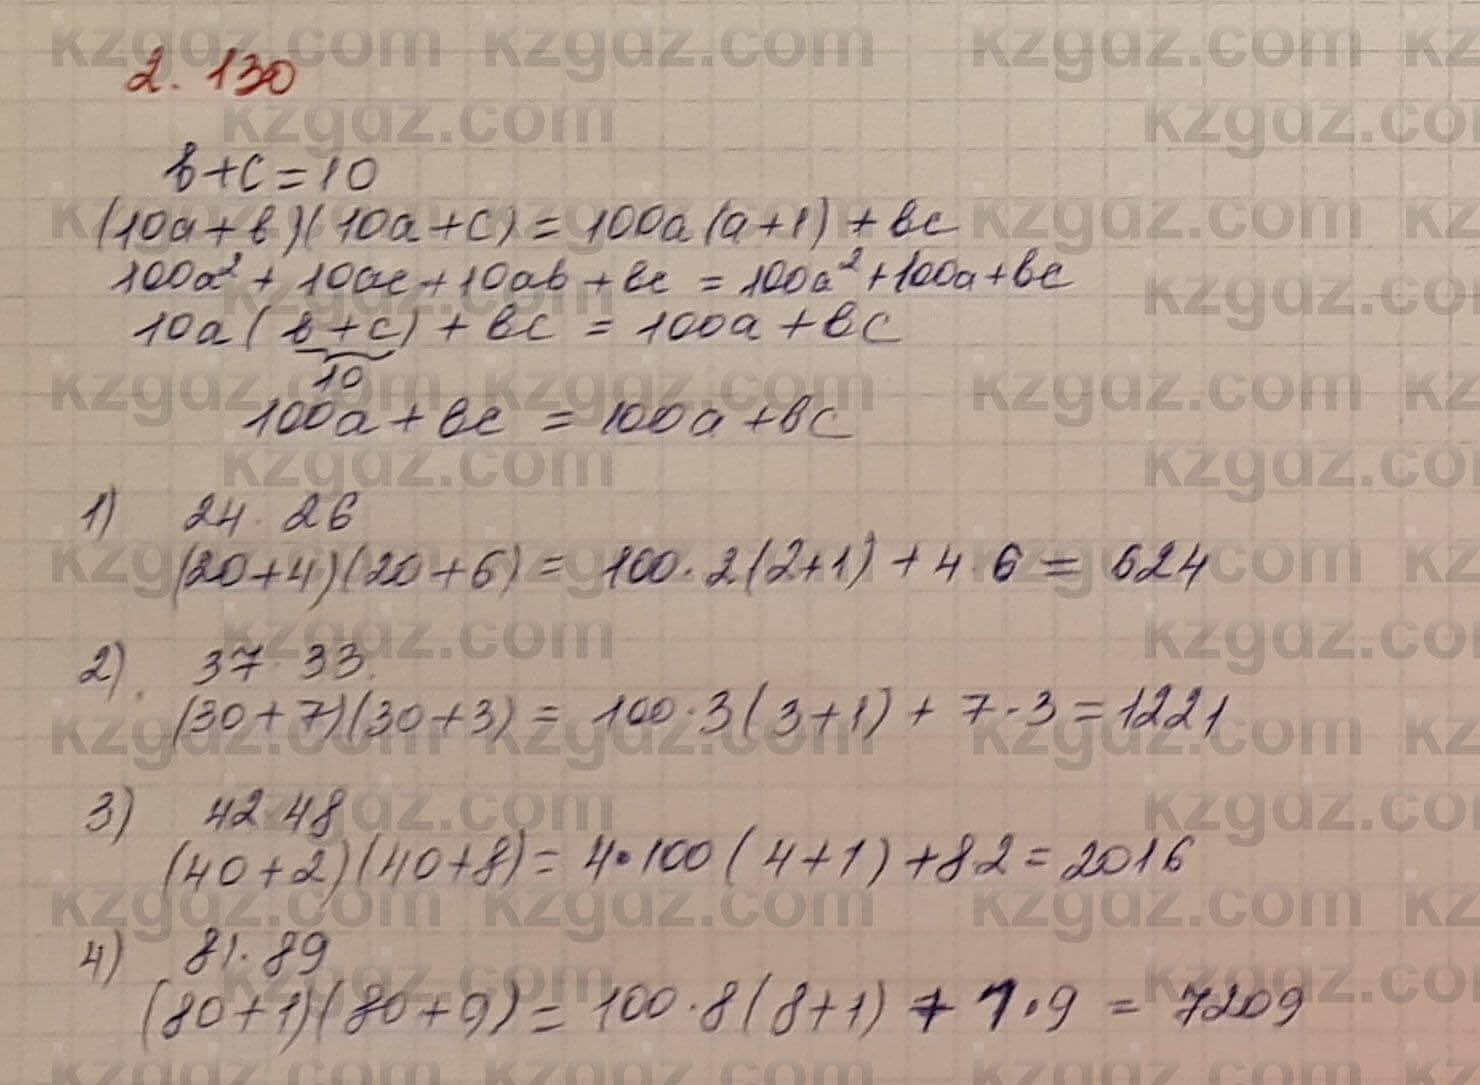 2. 130
b+c=10
(10a+b)(10a+c)=100a(a+1)+bc
100a²+10ac+10ab+bc=100a²+100a+bc
10a(b+c)+bc=100a+bc
10
100a+bc=100a+bc
1) 24·26
(20+4)(20+6)=100·2(2+1)+4·6=624
2). 37·33.
(30+7)(30+3)=100·3(3+1)+7·3=1221
3) 42·48
(40+2)(40+8)=4·100(4+1)+82=2016
4) 81·89
(80+1)(80+9)=100·8(8+1)+1·9=7209
kzgdz.com